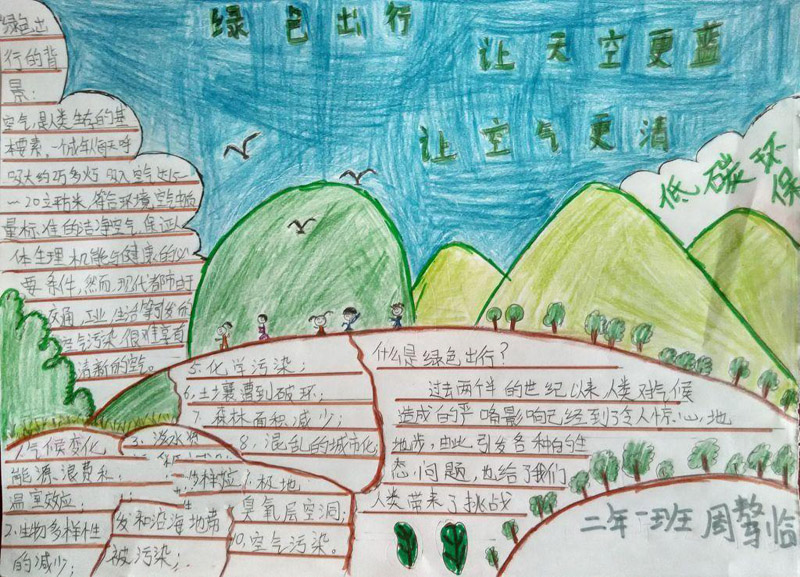 绿色出行
让天空更蓝
让空气更清
低碳环保
绿色出
行的背
景：
空气是人类生存的基
本要素，一个成年人每天呼
吸大约2万多次 吸入空气达15
—20立方米 符合环境空气质
量标准的洁净空气 保证人
体生理机能与健康的必
要条件，然而，现代都市由于
交通 工业 生活等引发的
空气污染 很难享有
清新的空气。
1.气候变化
能源浪费和
温室效应；
2.生物多样性
的减少；
3、淡水
发和沿海地带
被污染；
5.化学污染；
6.土壤遭到破坏；
7.森林面积减少；
8.混乱的城市化
极地
臭氧层空洞；
10.空气污染。
什么是绿色出行？
过去两个半的世纪以来人类对气候
造成的严咯影响已经到了令人惊心地
地步，由此引发各种的生
态问题，也给了我们
人类带来了挑战
二年一班 周擎临